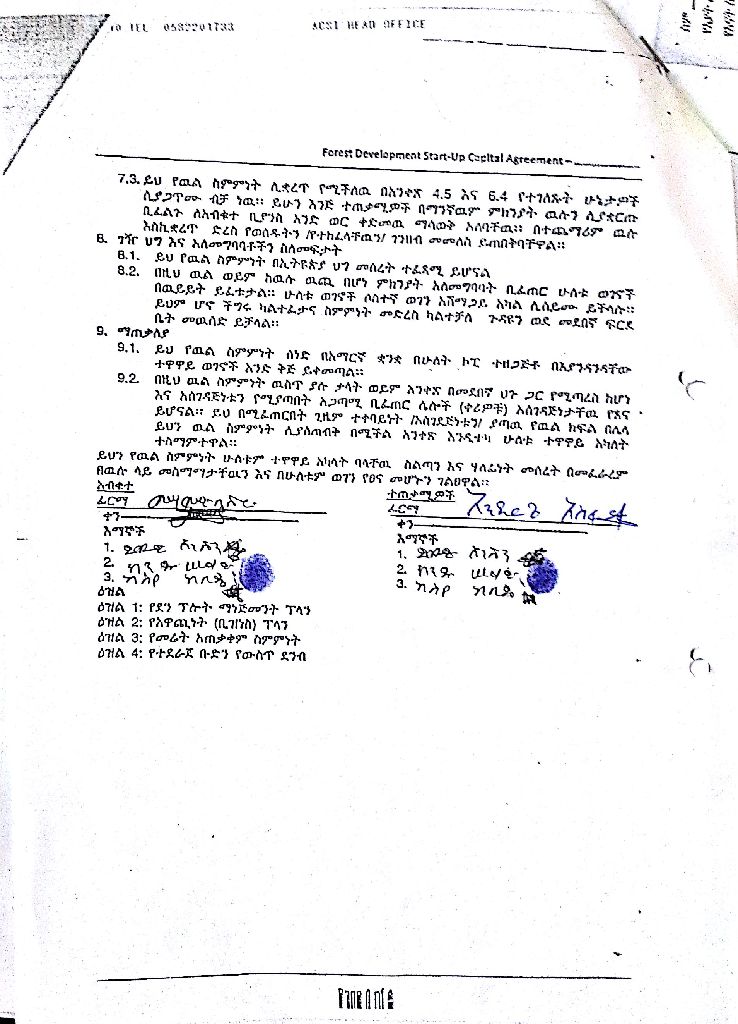 TEL 0582201733 ACSI HEAD OFFICE
Forest Development Start-Up Capital Agreement
7.3. ይህ የዉል ስምምነት ሊቋረጥ የሚችለዉ በአንቀጽ 4.5 እና 6.4 የተገለጹት ሁኔታዎች
ሲያጋጥሙ ብቻ ነዉ፡፡ ይሁን እንጅ ተጠቃሚዎች በማንኛዉም ምክንያት ዉሉን ሊያቋርጡ
ቢፈልጉ ለአብቁተ ቢያንስ አንድ ወር ቀድመዉ ማሳወቅ አለባቸዉ፡፡ በተጨማሪም ዉሉ
እስኪቋረጥ ድረስ የወሰዱትን /የተከፈላቸዉን/ ገንዘብ መመለስ ይጠበቅባቸዋል፡፡
8. ገዥ ህግ እና አለመግባባቶችን ስለመፍታት
8.1. ይህ የዉል ስምምነት በኢትዮጵያ ህግ መሰረት ተፈጻሚ ይሆናል
8.2. በዚህ ዉል ወይም ከዉሉ ዉጪ በሆነ ምክንያት አለመግባባት ቢፈጠር ሁለቱ ወገኖች
በዉይይት ይፈቱታል፡፡ ሁለቱ ወገኖች ሶስተኛ ወገን አሸማጋይ አካል ሊሰይሙ ይችላሉ፡፡
ይህም ሆኖ ችግሩ ካልተፈታና ስምምነት መድረስ ካልተቻለ ጉዳዩን ወደ መደበኛ ፍርድ
ቤት መዉሰድ ይቻላል፡፡
9. ማጠቃለያ
9.1. ይህ የዉል ስምምነት ሰነድ በአማርኛ ቋንቋ በሁለት ኮፒ ተዘጋጅቶ በእያንዳንዳቸው
ተዋዋይ ወገኖች እንድ ቅጅ ይቀመጣል፡፡
9.2. በዚህ ዉል ስምምነት ዉስጥ ያሉ ቃላት ወይም አንቀጽ በመደበኛ ህጉ ጋር የሚጣረስ ከሆነ
እና አስገዳጅነቱን የሚያጣበት አጋጣሚ ቢፈጠር ሌሎች (ቀሪዎቹ) አስገዳጅነታቸዉ የጸና
ይሆናል፡፡ ይህ በሚፈጠርበት ጊዜም ተቀባይነት /አስገደጅነቱን/ ያጣዉ የዉል ክፍል በሌላ
ይህን ዉል ስምምነት ሊያሰጥብቅ በሚችል አንቀጽ እንዲተካ ሁለቱ ተዋዋይ አካላት
ተስማምተዋል፡፡
ይህን የዉል ስምምነት ሁለቱም ተዋዋይ አካላት ባላቸዉ ስልጣን እና ሃላፊነት መሰረት በመፈራረም
በዉሉ ላይ መስማማታቸዉን እና በሁለቱም ወገን የፀና መሆኑን ገልፀዋል፡፡
አብቁተ
ፊርማ
ቀን
እማኞች
1.
2.
3.
ተጠቃሚዎች
ፊርማ
ቀን
እማኞች
1.
2.
3.
ዕዝል
ዕዝል 1: የደን ፕሎት ማኔጅመንት ፕላን
ዕዝል 2: የአዋጪነት (ቢዝነስ) ፕላን
ዕዝል 3: የመሬት አጠቃቀም ስምምነት
ዕዝል 4: የተደራጀ ቡድን የውስጥ ደንብ